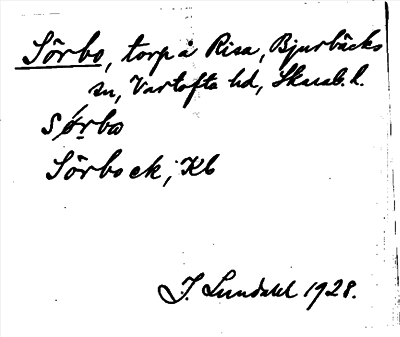 Sörbo, torp å Risa, Bjurbäcks
sn, Vartofta hd, Skarab. l.
sørba
Sörbo ek, Kb
I. Lundahl 1928.